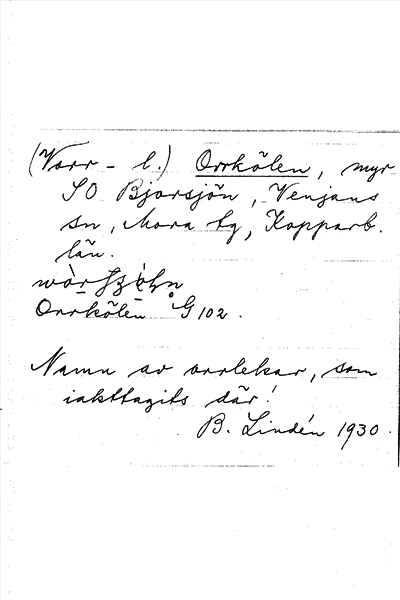 (Vorr - l.) Orrkölen, myr
SO Bjorsjön, Venjans
sn, Mora tg, Kopparb.
län.
Orrkölen G 102.
Namn av orrlekar, som
iakttagits där!
B. Lindén 1930.